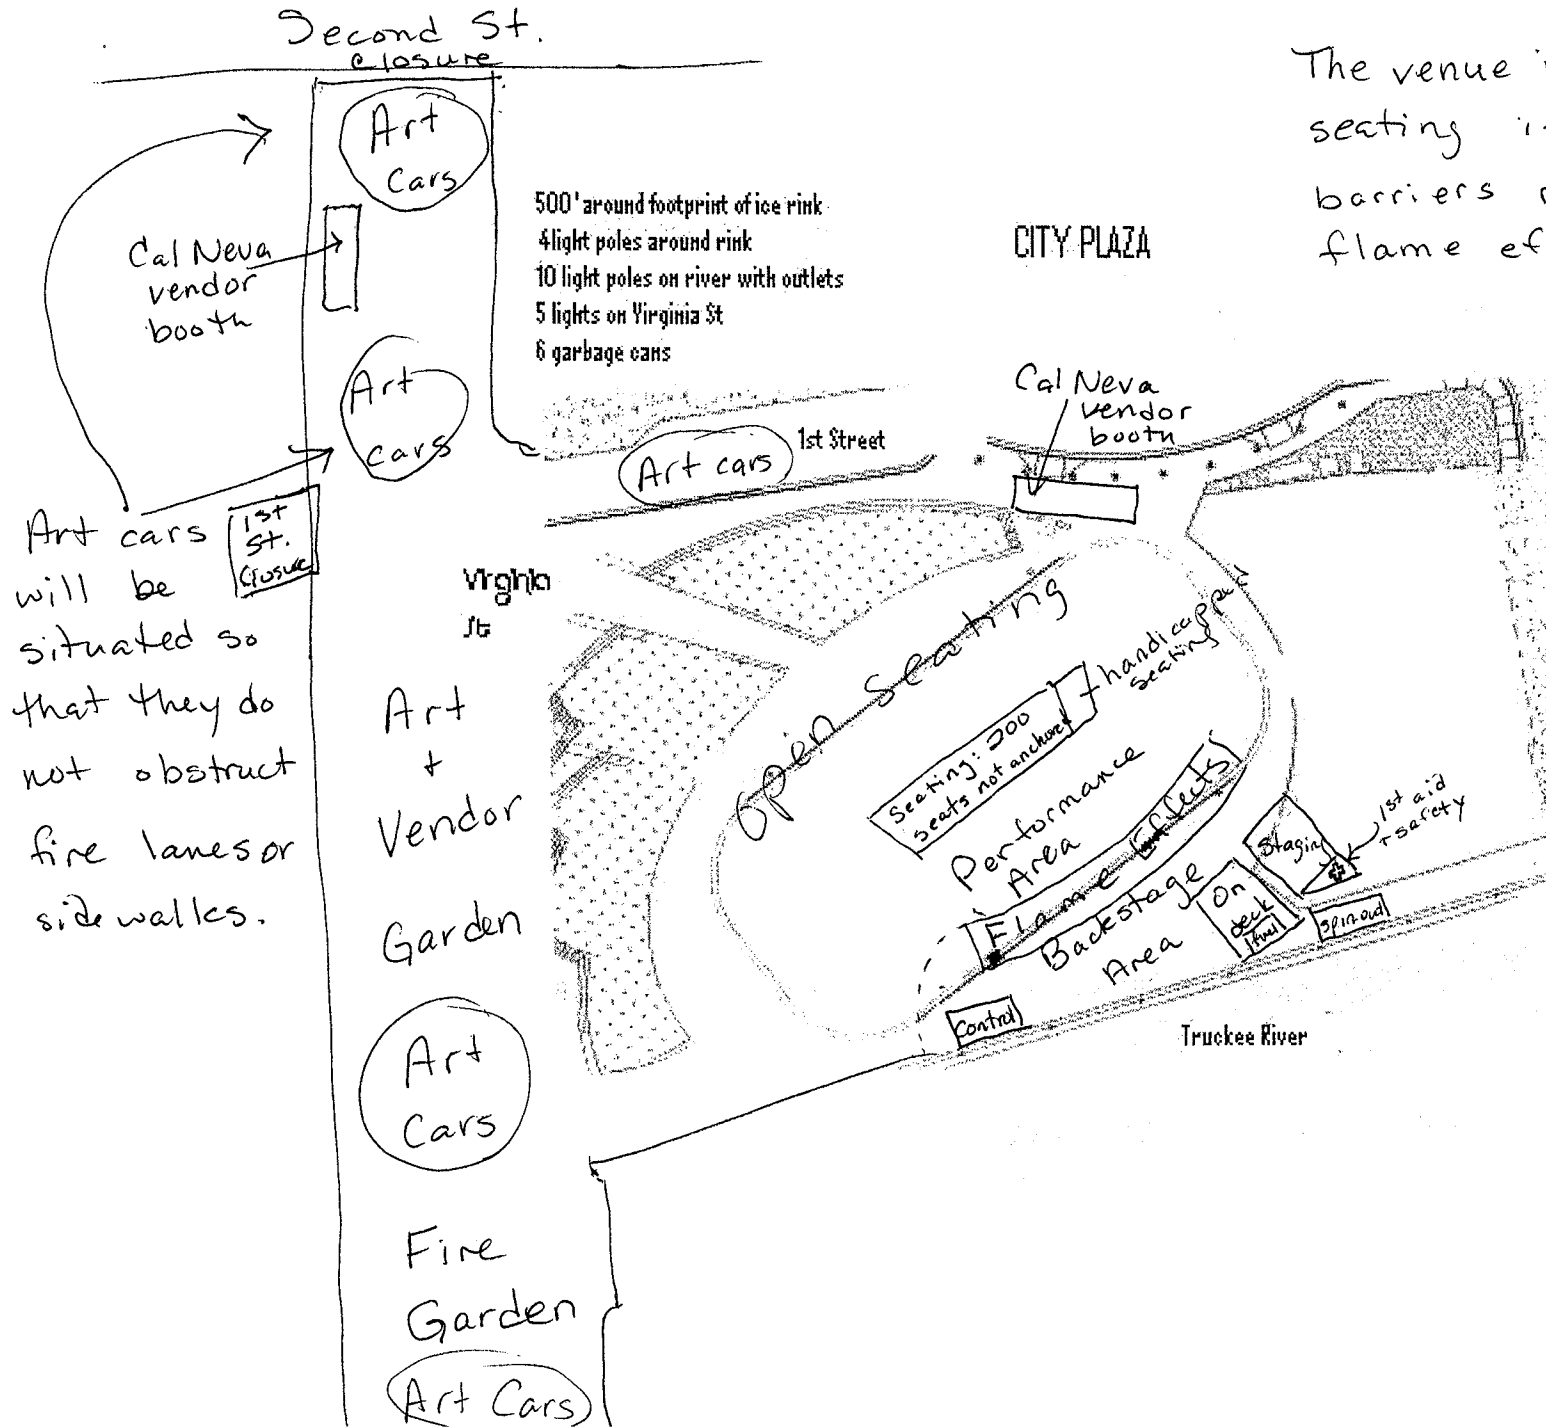 Second St.
closure
Art
Cars
Cal Neva
vendor
booth
500' around footprint of ice rink
4 light poles around rink
10 light poles on river with outlets
5 lights on Virginia St
6 garbage cans
CITY PLAZA
The venue
seating
barriers
flame ef
Art
cars
Art cars
1st Street
Cal Neva
vendor
booth
Art cars
will be
situated so
that they do
not obstruct
fire lanes or
sidewalks.
1st
St.
Closure
Virginia
St
Art
+
Vendor
Garden
Open seating
handicapped
seating
Seating: 200
seats not anchored
Performance
Area
Flame Effects
Backstage
Area
Staging
1st aid
+ safety
On
deck
fuel
spin out
Control
Truckee River
Art
Cars
Fire
Garden
Art Cars